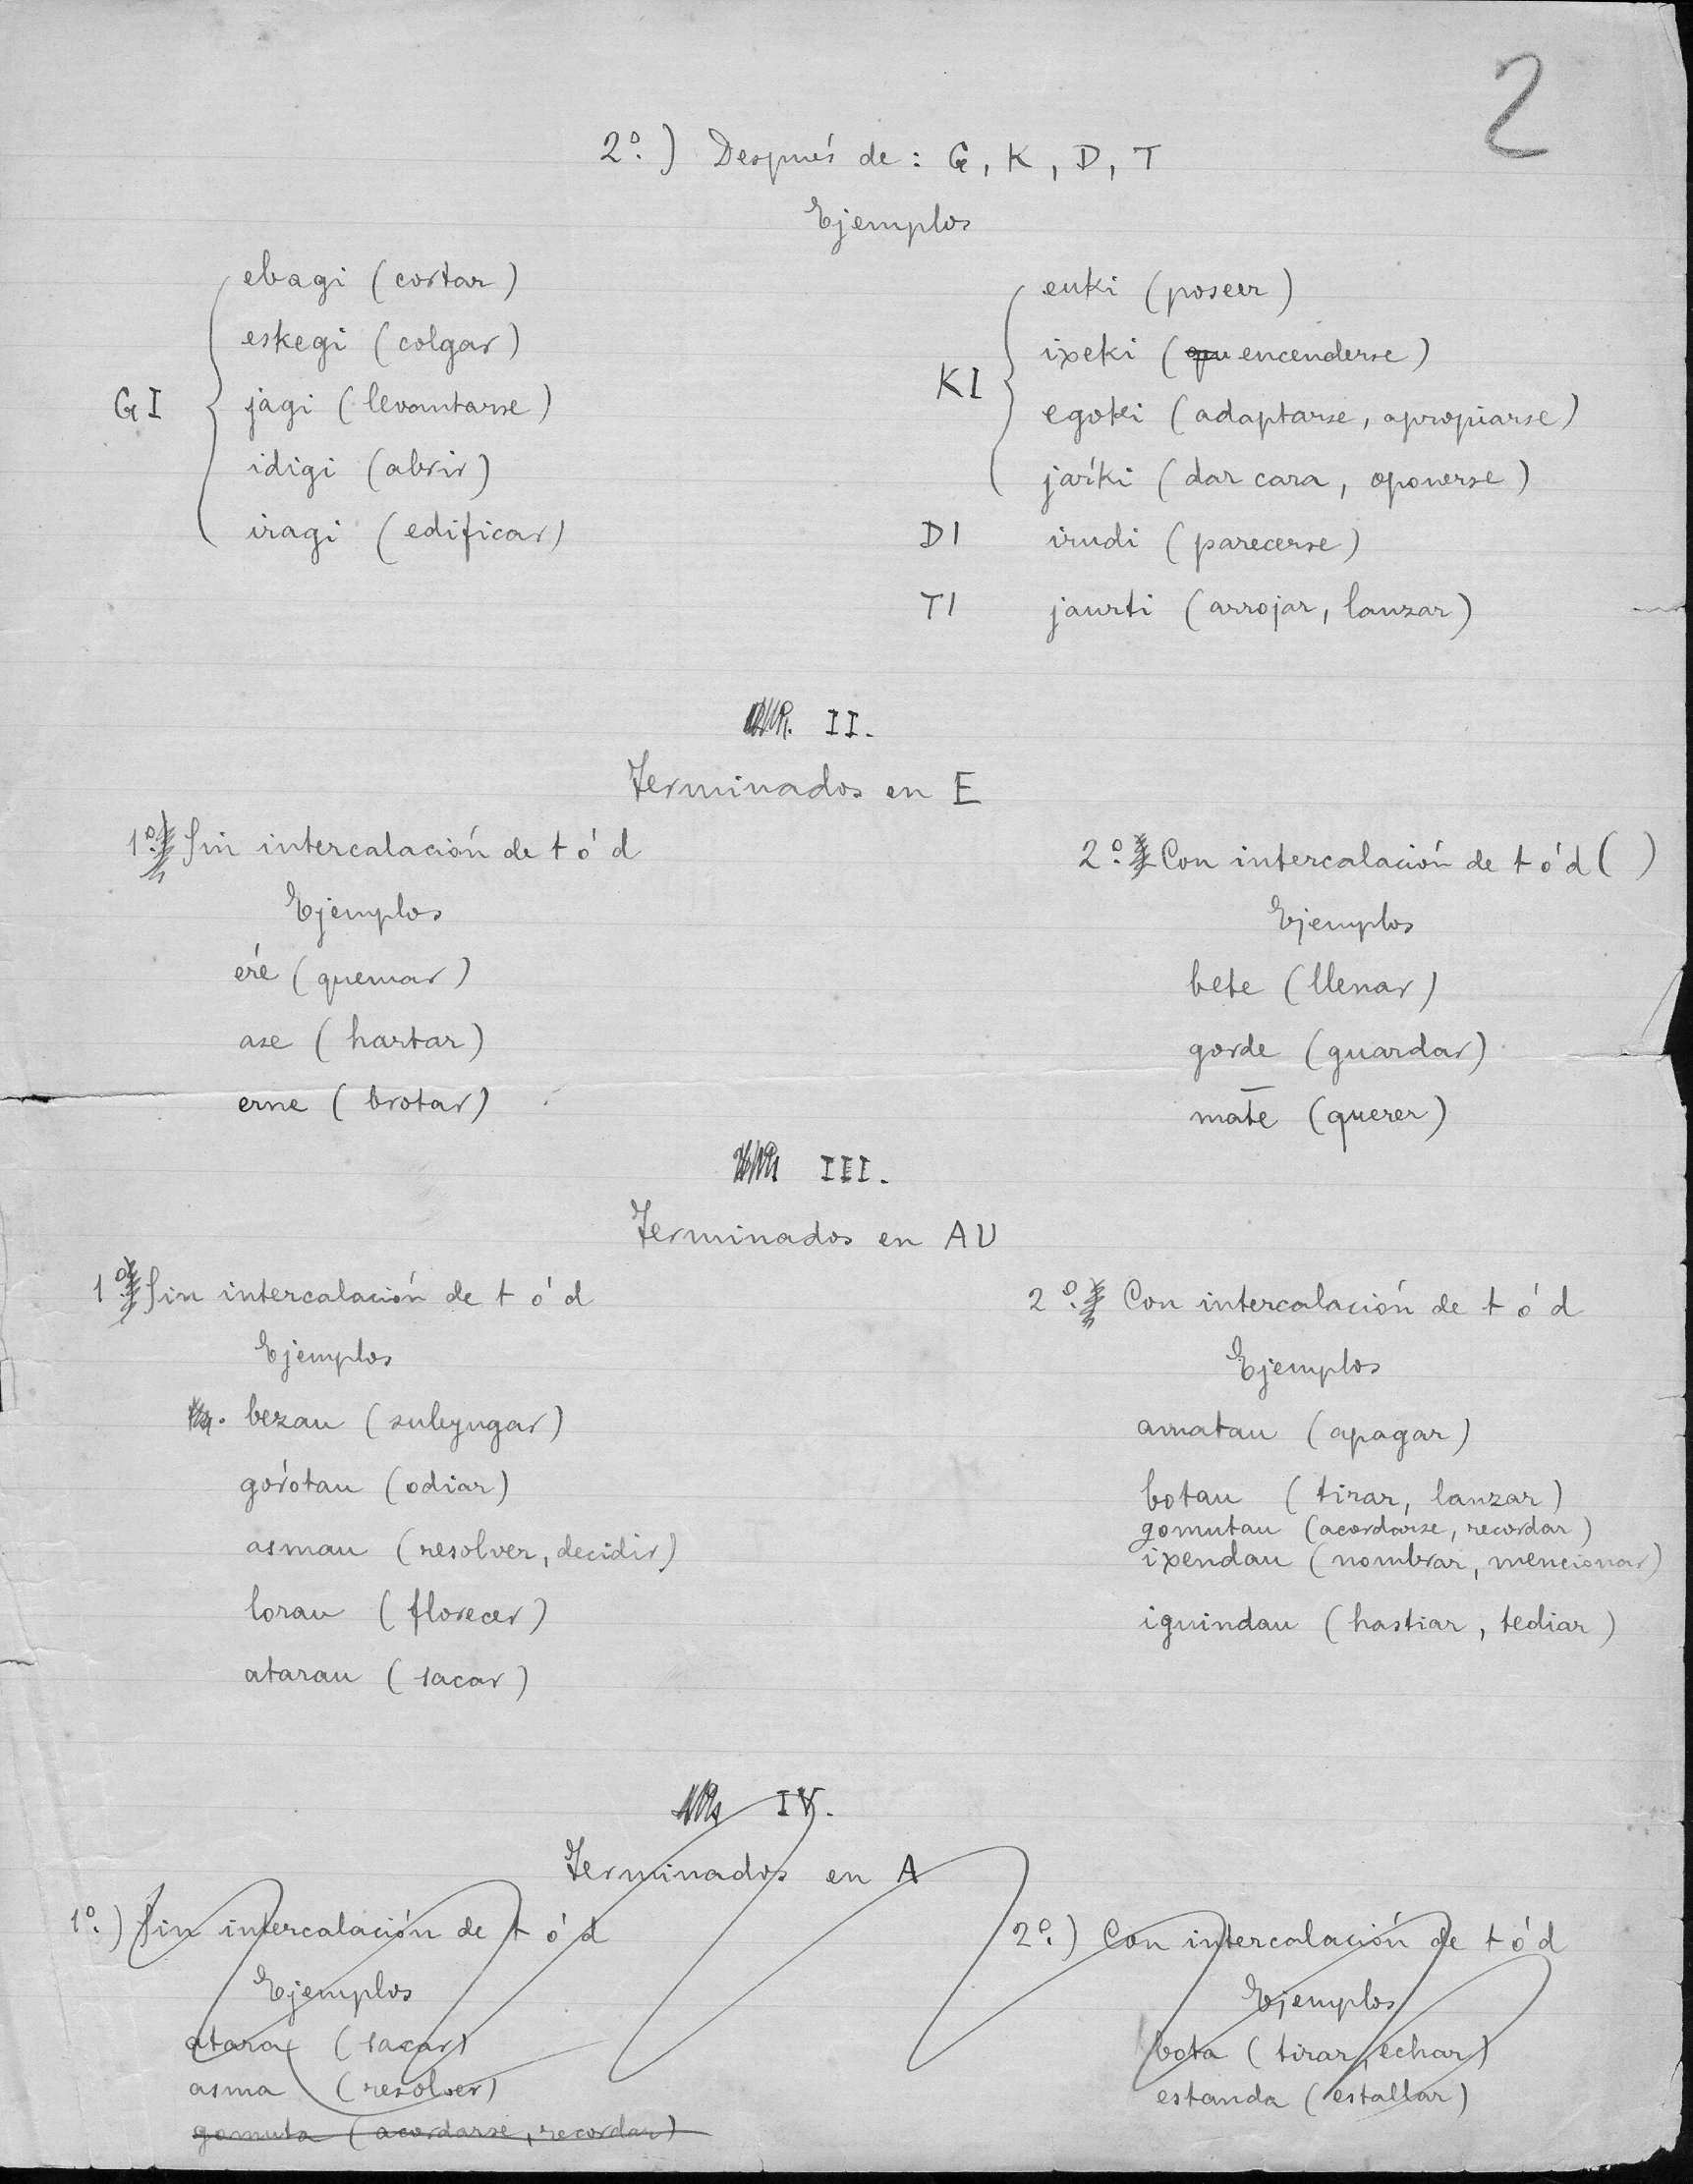 2
2º.) Después de: G, K, D, T
Ejemplos
GI
ebagi (cortar)
eskegi (colgar)
jagi (levantarse)
idigi (abrir)
iragi (edificar)
KI
euki (poseer)
ixeki (qu encenderse)
egoki (adaptarse, apropiarse)
jaŕki (dar cara, oponerse)
DI irudi (parecerse)
TI jaurti (arrojar, lanzar)
II.
Terminados en E
1º. Sin intercalación de t ó d
Ejemplos
eŕe (quemar)
ase (hartar)
erne (brotar)
2º. Con intercalación de t ó d ( )
Ejemplos
bete (llenar)
gorde (guardar)
mat̄e (querer)
III.
Terminados en AU
1º. Sin intercalación de t ó d
Ejemplos
bezau (subyugar)
goŕotau (odiar)
asmau (resolver, decidir)
lorau (florecer)
atarau (sacar)
2º. Con intercalación de t ó d
Ejemplos
amatau (apagar)
botau (tirar, lanzar)
gomutau (acordarse, recordar)
ixendau (nombrar, mencionar)
iguindau (hastiar, tediar)
IV.
Terminados en A
1º.) Sin intercalación de t ó d
Ejemplos
atara (sacar)
asma (resolver)
gomuta (acordarse, recordar)
2º.) Con intercalación de t ó d
Ejemplos
bota (tirar, echar)
estanda (estallar)